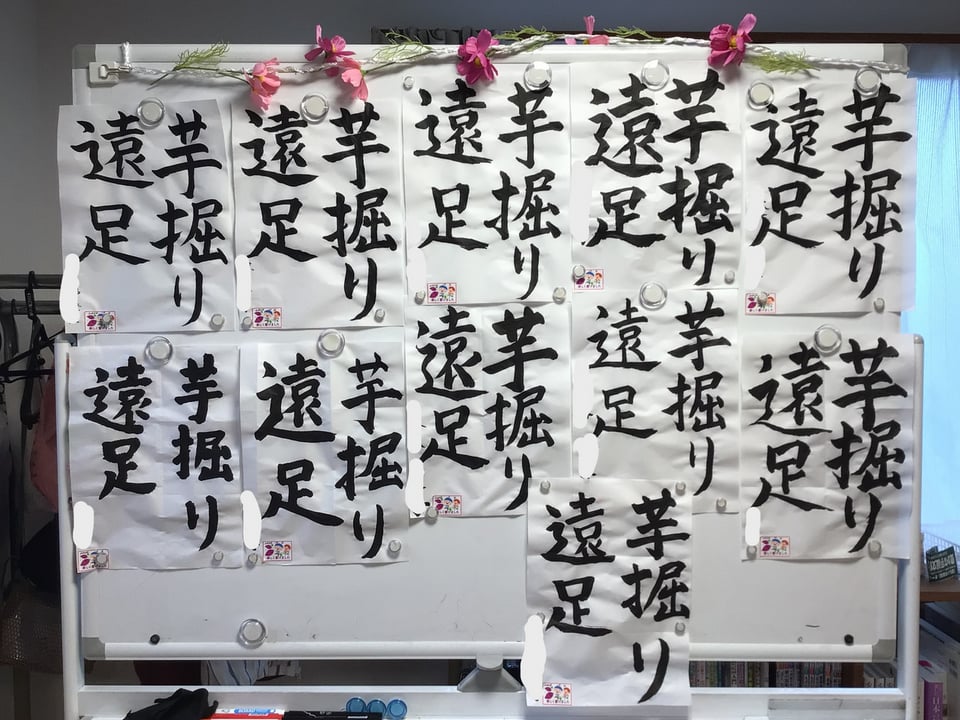 芋掘り
遠足
芋掘り
遠足
芋掘り
遠足
芋掘り
遠足
芋掘り
遠足
芋掘り
遠足
芋掘り
遠足
芋掘り
遠足
芋掘り
遠足
芋掘り
遠足
芋掘り
遠足